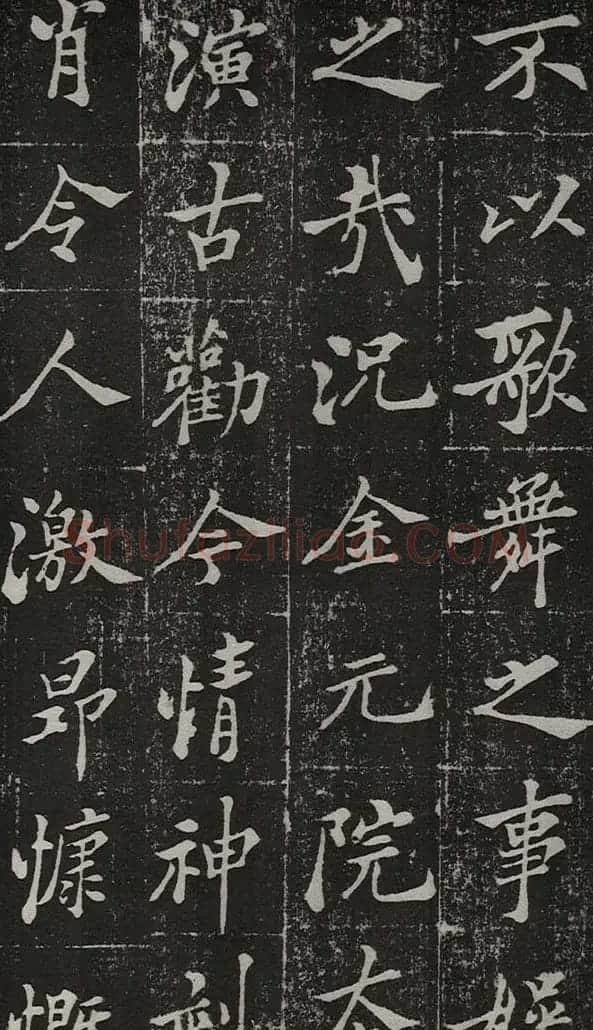 不以歌舞之事娛
之哉況金元院本
演古勸今情神刻
肖令人激昂慷慨
Shufaziliao.COM